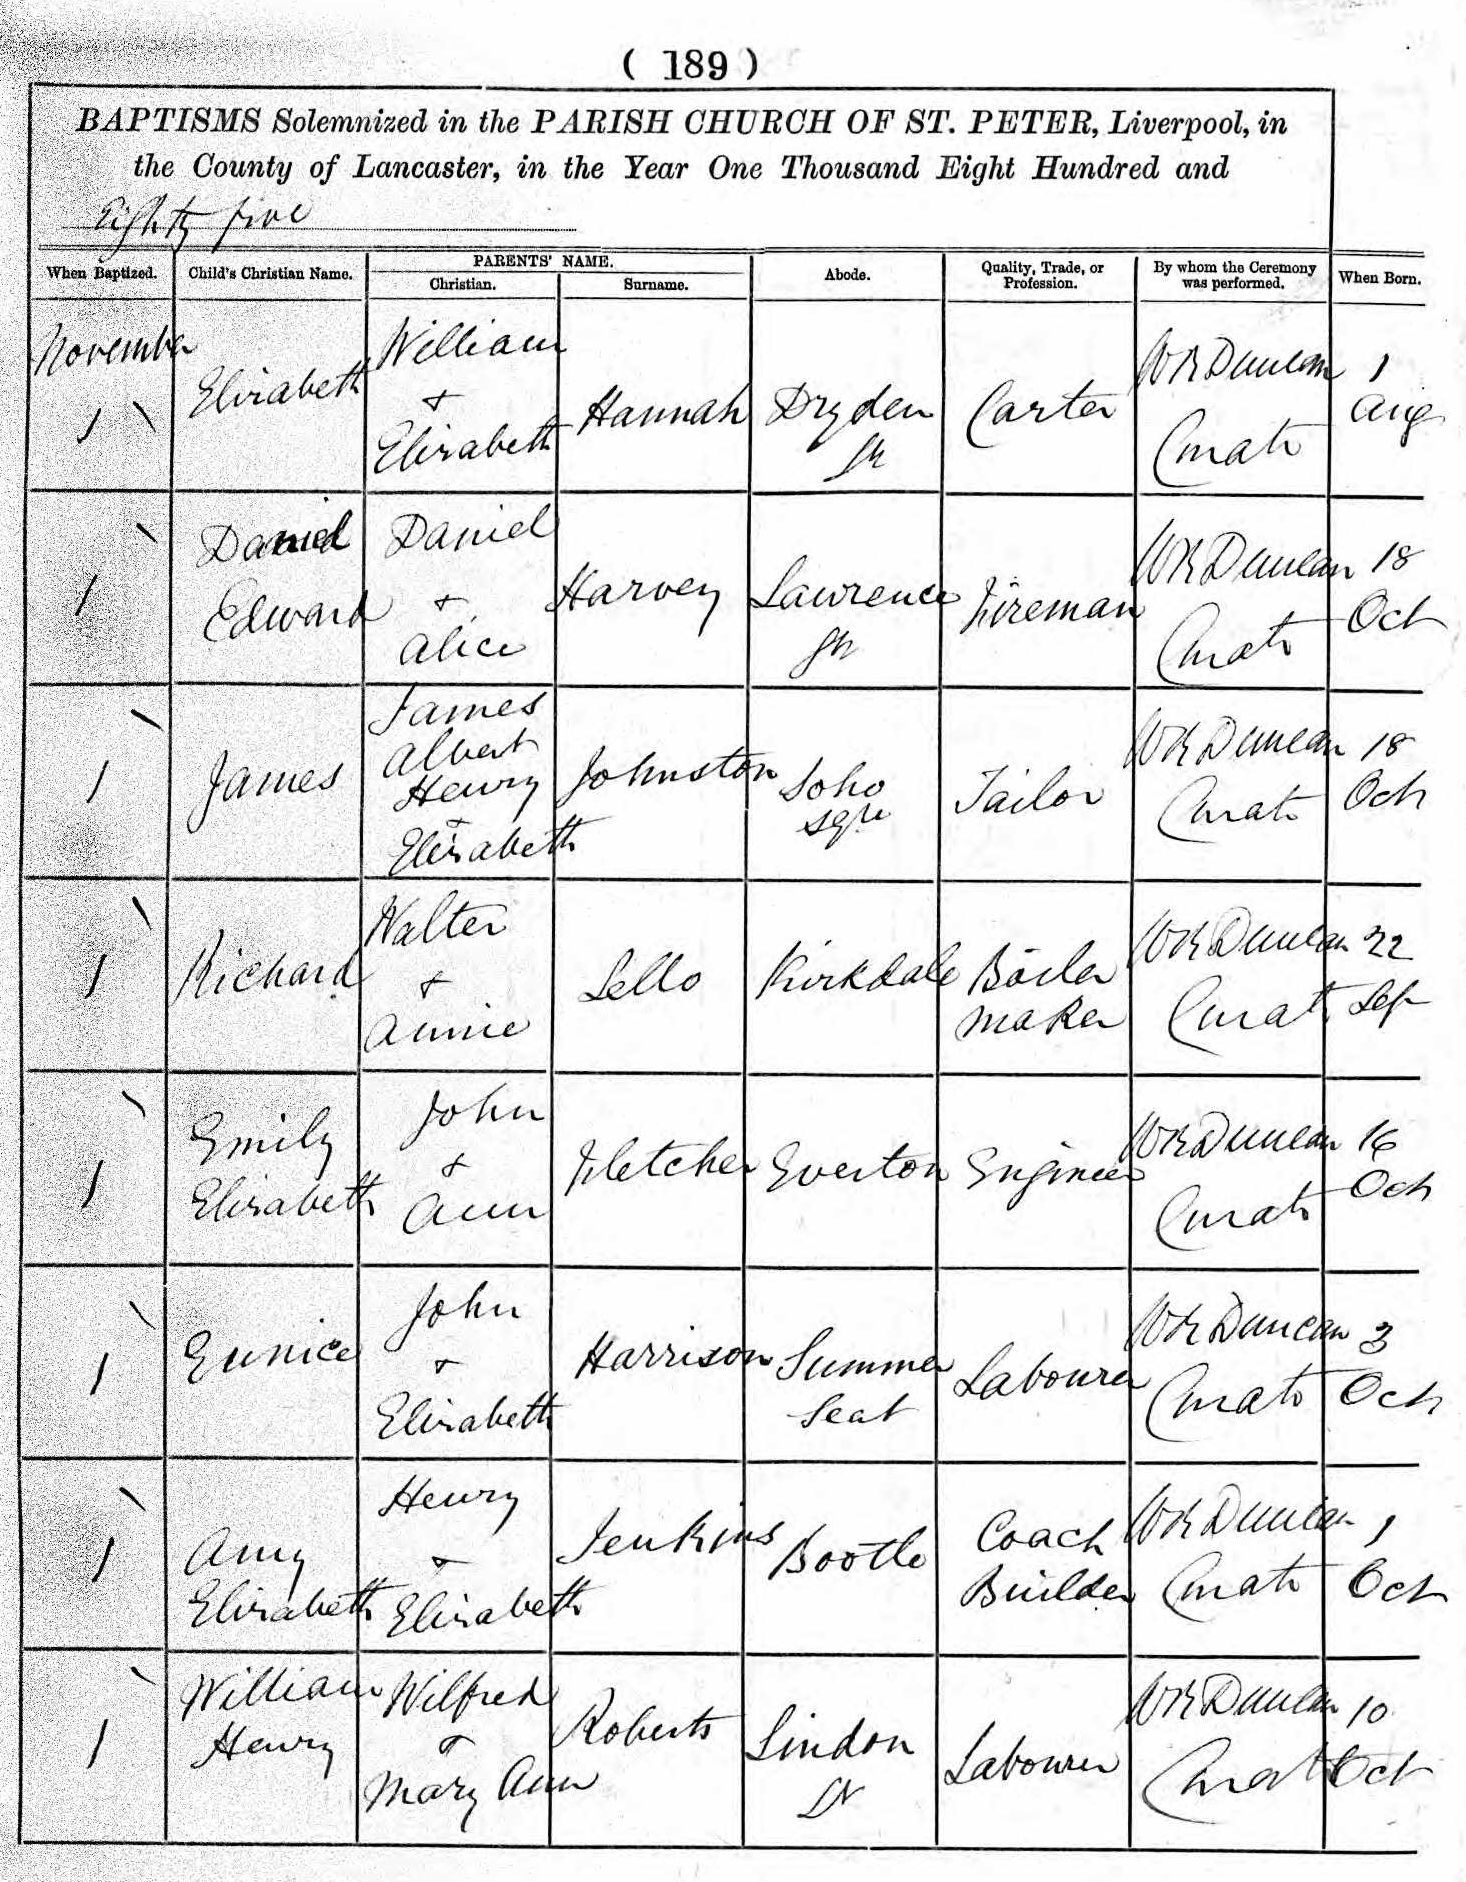 ( 189 )
BAPTISMS Solemnized in the PARISH CHURCH OF ST. PETER, Liverpool, in
the County of Lancaster, in the Year One Thousand Eight Hundred and
Eighty five
When Baptized. Child's Christian Name. PARENTS' NAME. Christian. Surname. Abode. Quality, Trade, or Profession. By whom the Ceremony was performed. When Born.
November 1 Elizabeth William & Elizabeth Hannah Dryden St Carter W R Duncan Curate 1 Aug
1 Daniel Edward Daniel & Alice Harvey Lawrence St Fireman W R Duncan Curate 18 Oct
1 James James Albert Henry & Elizabeth Johnston Soho Sqre Tailor W R Duncan Curate 18 Oct
1 Richard Walter & Annie Lello Kirkdale Boiler Maker W R Duncan Curate 22 Sep
1 Emily Elizabeth John & Ann Fletcher Everton Engineer W R Duncan Curate 16 Oct
1 Eunice John & Elizabeth Harrison Summer Seat Labourer W R Duncan Curate 3 Oct
1 Amy Elizabeth Henry & Elizabeth Jenkins Bootle Coach Builder W R Duncan Curate 1 Oct
1 William Henry Wilfred & Mary Ann Roberts Lindon St Labourer W R Duncan Curate 10 Oct